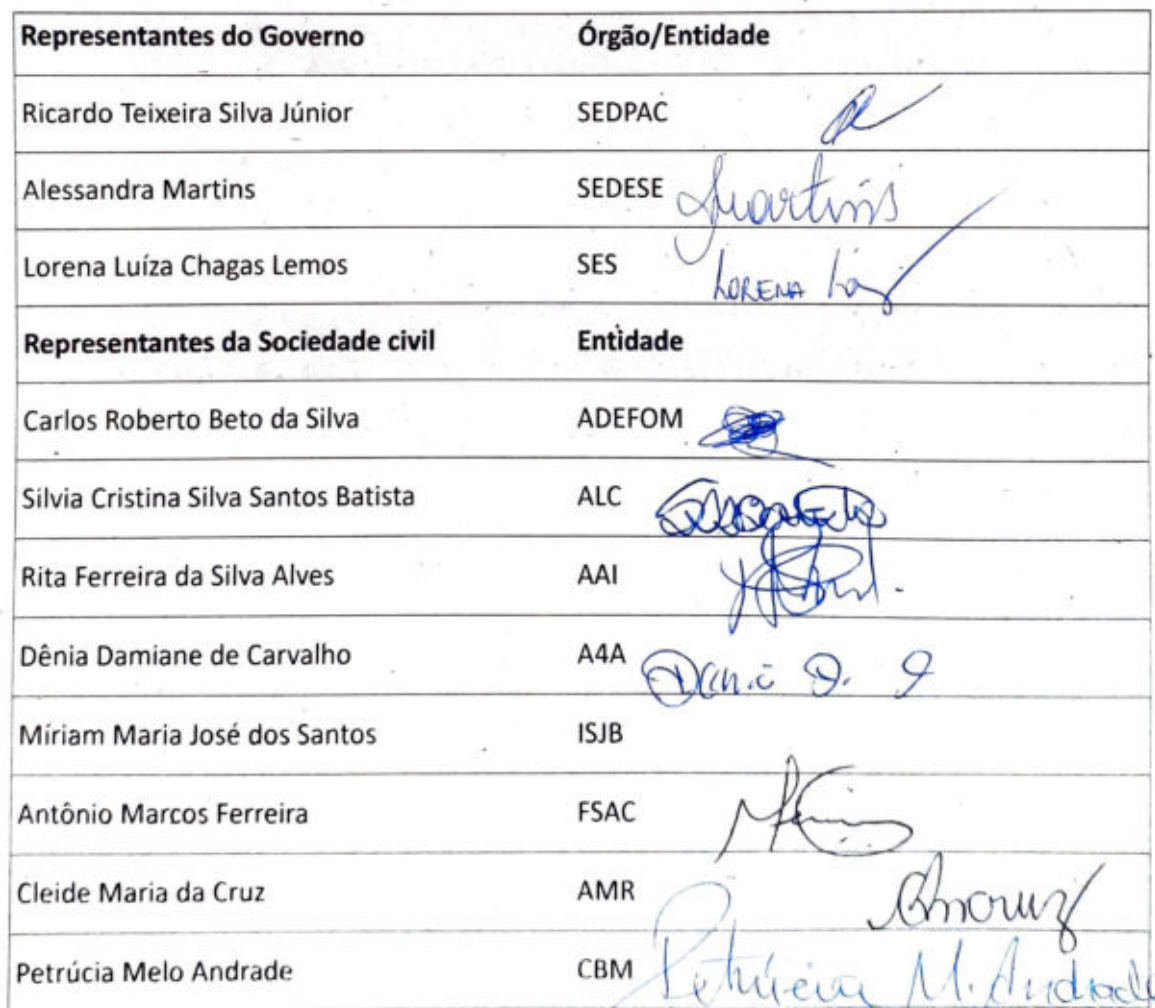 Representantes do Governo Órgão/Entidade
Ricardo Teixeira Silva Júnior SEDPAC
Alessandra Martins SEDESE Martins
Lorena Luíza Chagas Lemos SES LORENA
Representantes da Sociedade civil Entidade
Carlos Roberto Beto da Silva ADEFOM
Silvia Cristina Silva Santos Batista ALC
Rita Ferreira da Silva Alves AAI
Dênia Damiane de Carvalho A4A
Míriam Maria José dos Santos ISJB
Antônio Marcos Ferreira FSAC
Cleide Maria da Cruz AMR
Petrúcia Melo Andrade CBM Petrúcia M. Andrade